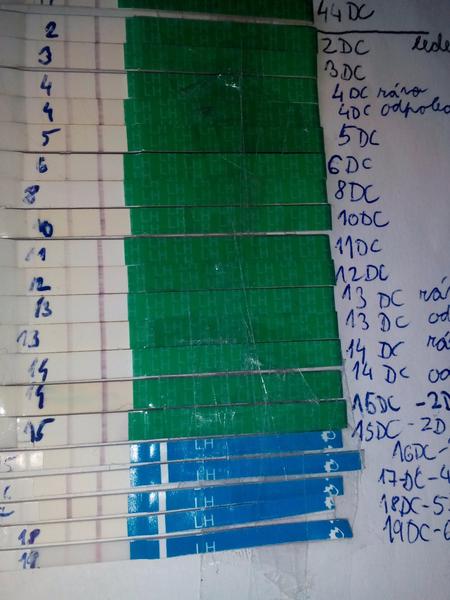 44DC
2 2DC
3 3DC
4 4DC ráno
4 4DC odpole
5 5DC
6 6DC
8 8DC
10 10DC
11 11DC
12 12DC
13 13 DC rá
13 13 DC od
14 14 DC rá
14 14 DC od
15 15DC -2D
15DC -2D
5 16DC-
17-DC-4
18DC-5
18 19DC-6
19
LH
LH
LH
LH
LH